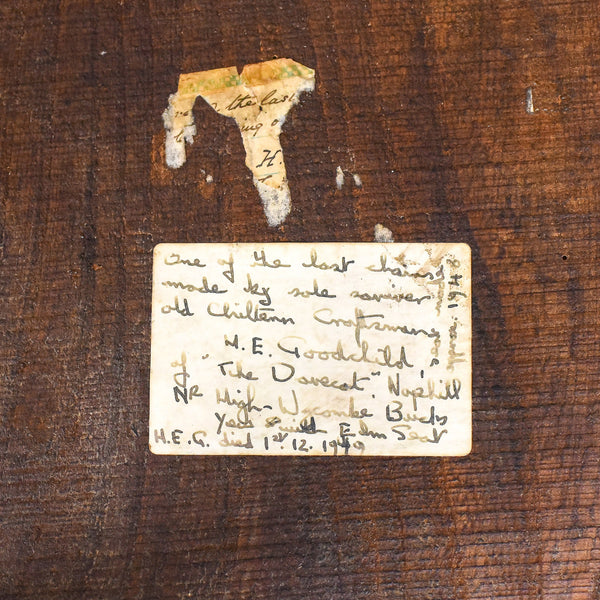 the last
H.
One of the last chairs
made by sole surviver
old Chiltern Craftsmans
H. E. Goodchild,
of "The Dovecot", Naphill
Nr High-Wycombe Bucks
Yew with Elm Seat
H.E.G. died 1st. 12. 1949
1948